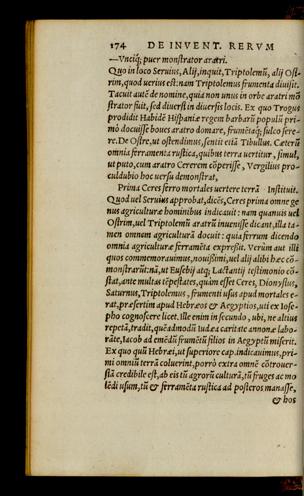 174 DE INVENT. RERVM
—Vnciq; puer monstrator aratri.
Quo in loco Seruius, Alij, inquit, Triptolemū, alij Ost
rim, quod uerius est: nam Triptolemus frumenta diuisit.
Tacuit autē de nomine, quia non unus in orbe aratri mō
strator fuit, sed diuersi in diuersis locis. Ex quo Trogus
prodidit Habidē Hispaniæ regem barbarū populū pri-
mò docuisse boues aratro domare, frumētaq́; sulco sere-
re. De Ostre, ut ostendimus, sentit etiā Tibullus. Cæterū
omnia ferramenta rustica, quibus terra uertitur, simul,
ut puto, cum aratro Cererem cōperisse, Vergilius pro-
culdubio hoc uersu demonstrat,
Prima Ceres ferro mortales uertere terrā Instituit.
Quod uel Seruius approbat, dicēs, Ceres prima omne ge
nus agriculturæ hominibus indicauit: nam quamuis uel
Ostrim, uel Triptolemū aratrū inuenisse dicant, illa ta-
men omnem agriculturā docuit: quia ferrum dicendo
omnia agriculturæ ferramēta expressit. Verùm aut illi
quos commemorauimus, nouissimi, uel alij alibi hæc cō-
monstrarūt: nā, ut Eusebij atq; Lactantij testimonio cō-
stat, ante multas tēpestates, quàm esset Ceres, Dionysius,
Saturnus, Triptolemus, frumenti usus apud mortales e-
rat, præsertim apud Hebræos & Aegyptios, uti ex Iose-
pho cognoscere licet. Ille enim in secundo, ubi, ne altius
repetā, tradit, quēadmodū tudæa caritate annonæ labo-
rāte, Iacob ad emēdū frumētū filios in Aegyptū miserit.
Ex quo quū Hebræi, ut superiore cap. indicauimus, pri-
mi omniū terrā coluerint, porrò extra omnē cōtrouer-
siā credibile est, ab eis tū agrorū culturā, tū fruges ac mo
lēdi usum, tū & ferramēta rustica ad posteros manasse,
& hos